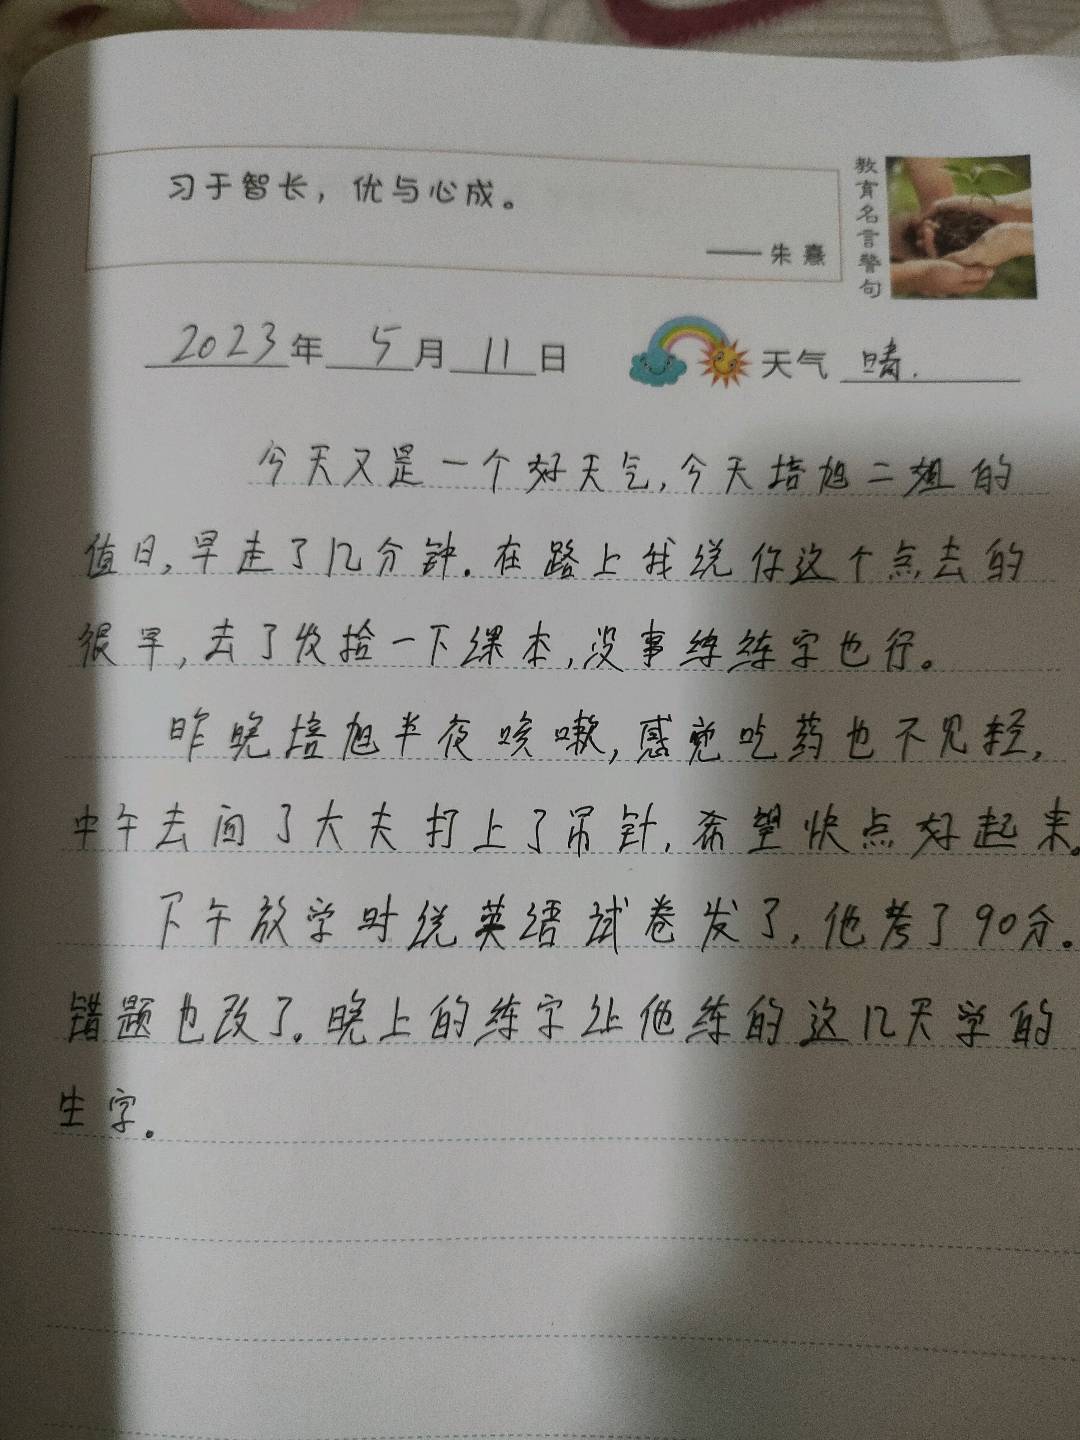 习于智长，优与心成。
——朱熹
教育名言警句
2023年 5月 11日 天气 晴.
今天又是一个好天气,今天培旭二姐的
值日,早走了几分钟.在路上我说你这个点去的
很早,去了收拾一下课本,没事练练字也行。
昨晚培旭半夜咳嗽,感觉吃药也不见轻,
中午去面了大夫打上了吊针,希望快点好起来。
下午放学时说英语试卷发了,他考了90分。
错题也改了。晚上的练字让他练的这几天学的
生字。